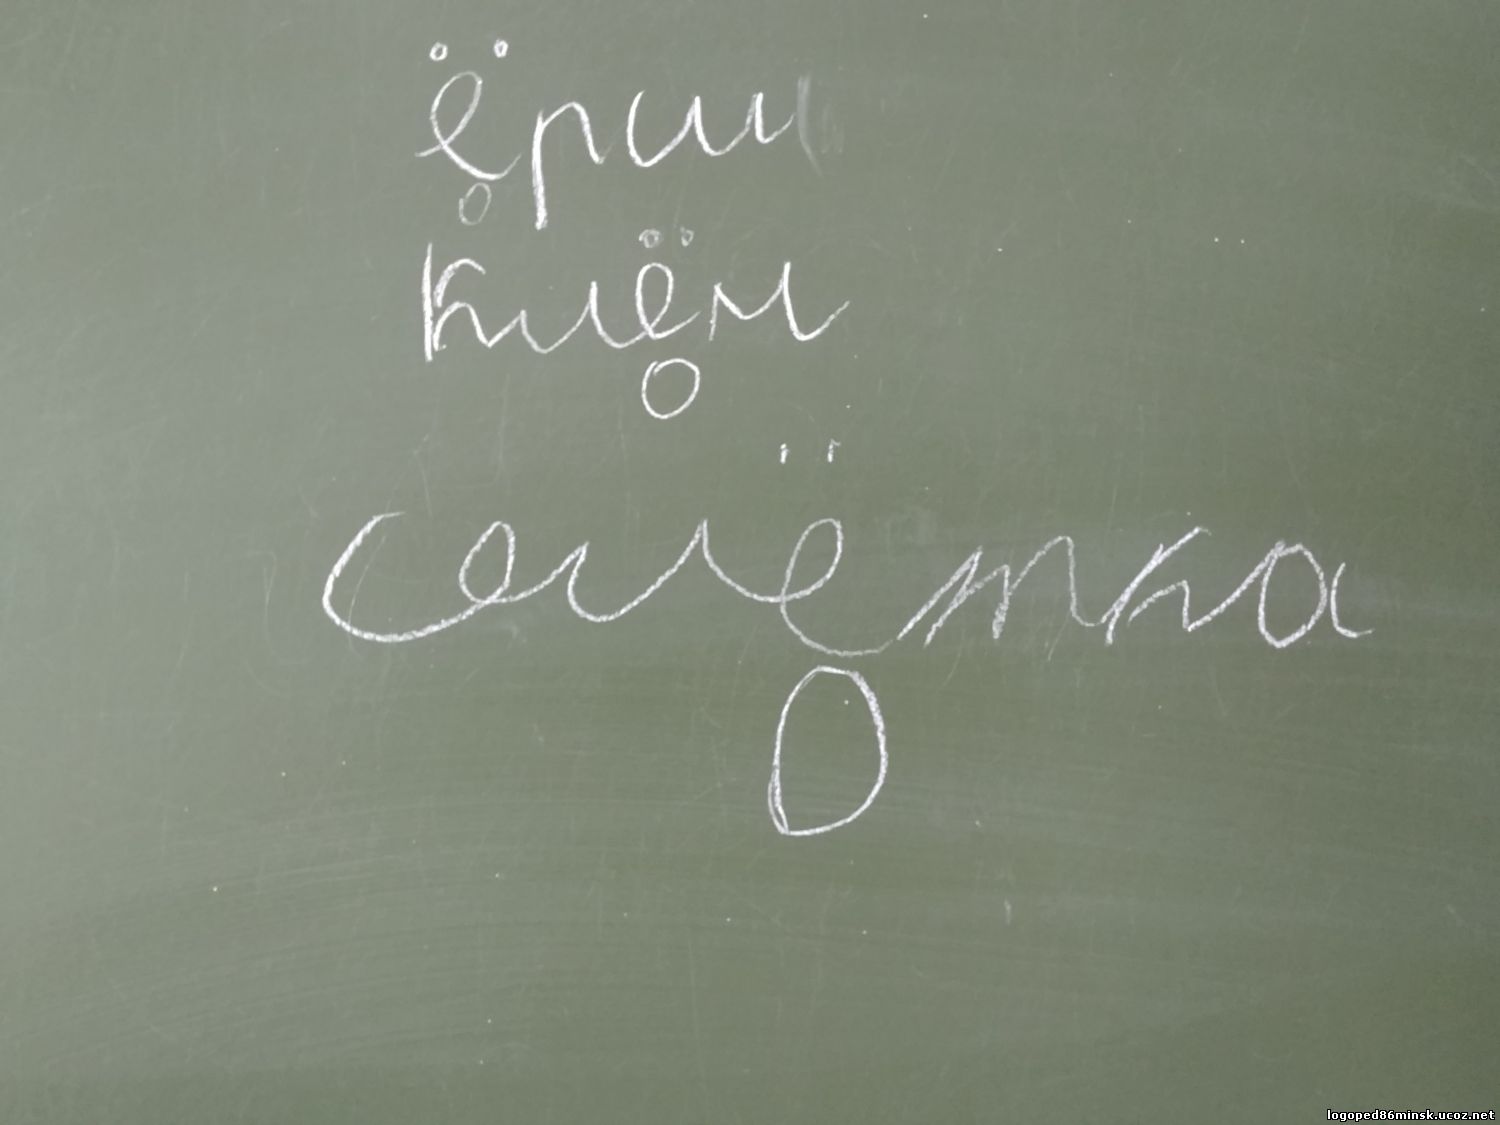 ёрш
клём
селётка
logoped86minsk.ucoz.net